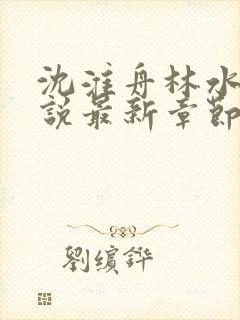 沈淮舟林水
說最新章節
劉縯鏵